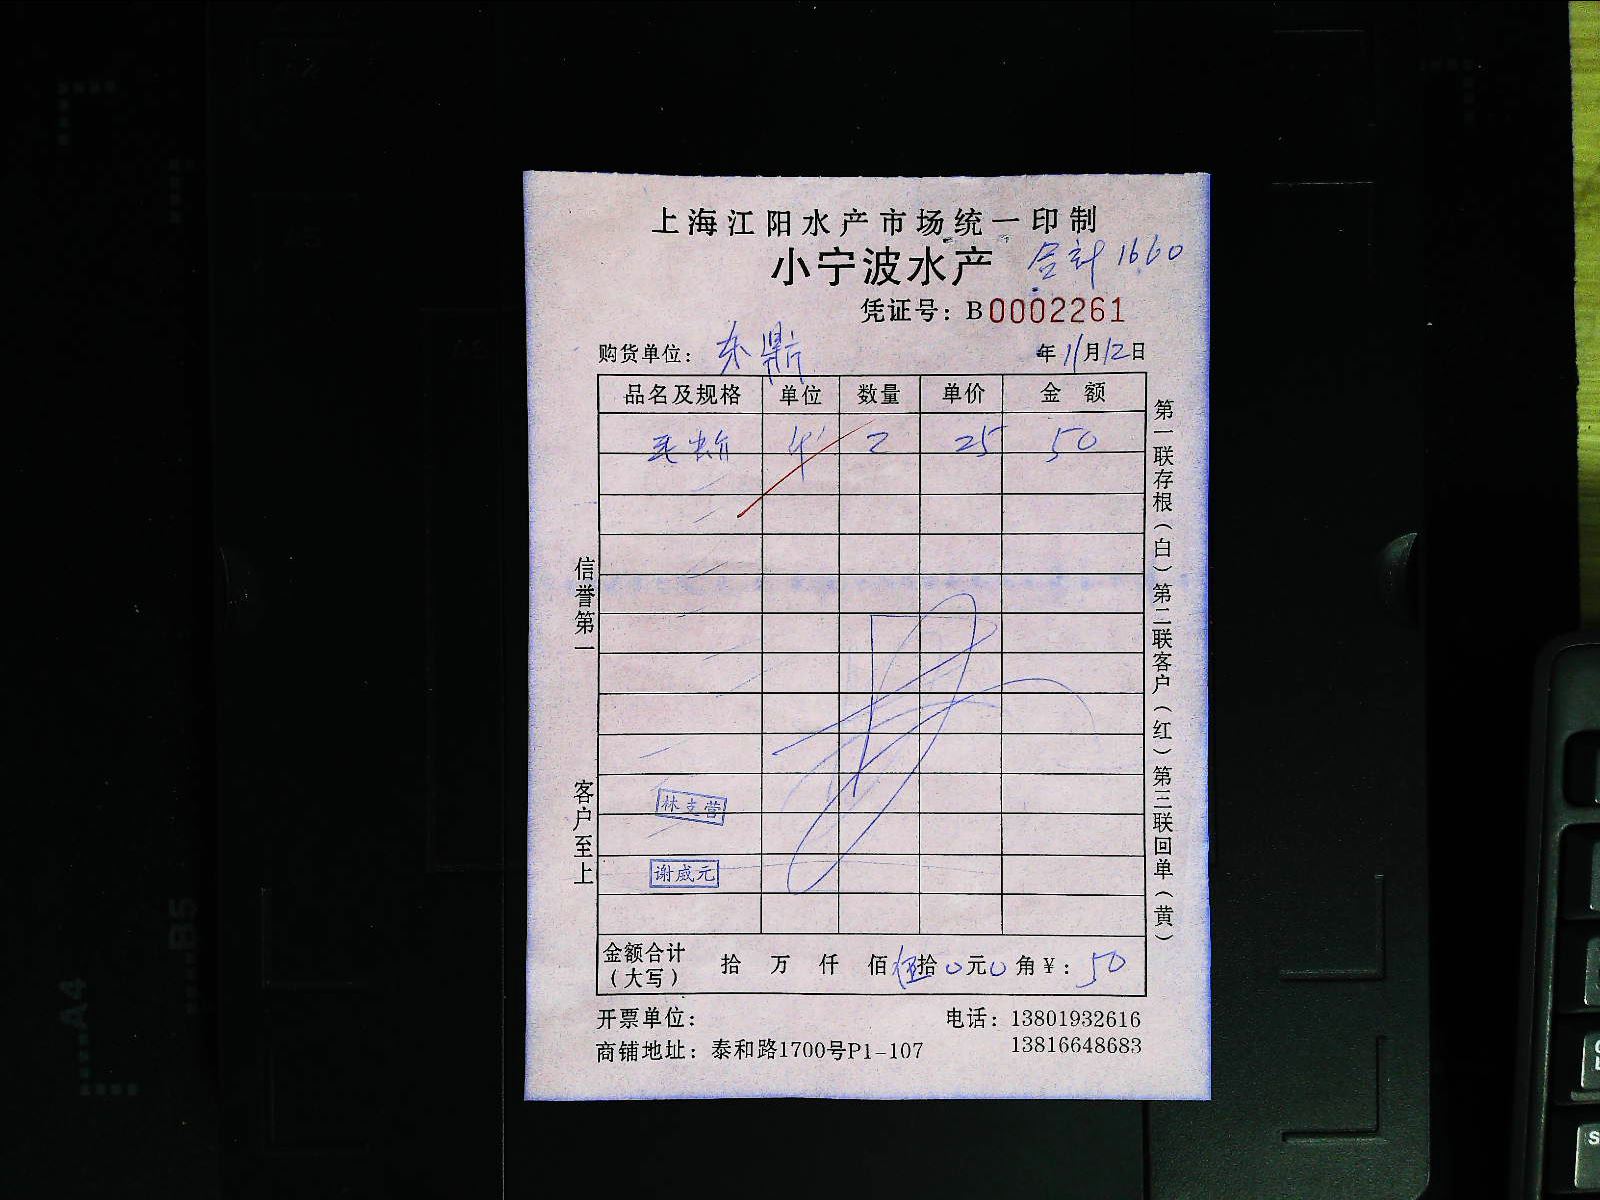 上海江阳水产市场统一印制
小宁波水产 合计1660
凭证号：B0002261
购货单位：东鼎 年11月12日
品名及规格 单位 数量 单价 金额
毛蚧 2 25 50
林支营
谢威元
金额合计（大写） 拾 万 仟 佰 伍拾0元0角¥：50
开票单位： 电话：13801932616
商铺地址：泰和路1700号P1-107 13816648683
信誉第一 客户至上
第一联存根（白）第二联客户（红）第三联回单（黄）
A4
B5